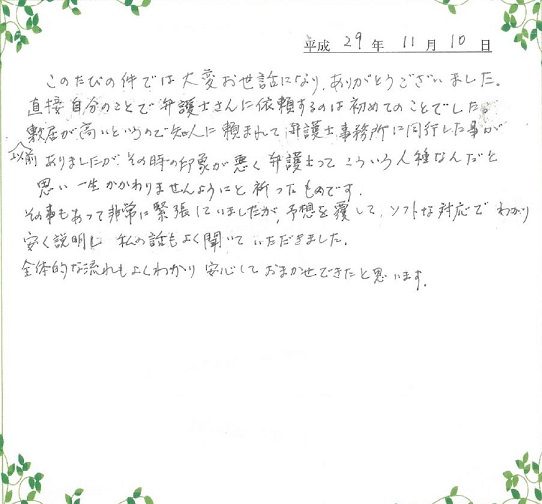 平成 29 年 11 月 10 日
このたびの件では大変お世話になり、ありがとうございました。
直接自分のことで弁護士さんに依頼するのは初めてのことでした。
敷居が高いというので知人に頼まれて弁護士事務所に同行した事が
以前 ありましたが、その時の印象が悪く弁護士って こういう人種なんだと
思い一生かかわりませんようにと祈ったものです。
その事もあって非常に緊張していましたが、予想を覆して、ソフトな対応で わかり
安く説明し 私の話もよく聞いていただきました。
全体的な流れもよくわかり 安心しておまかせできたと思います。